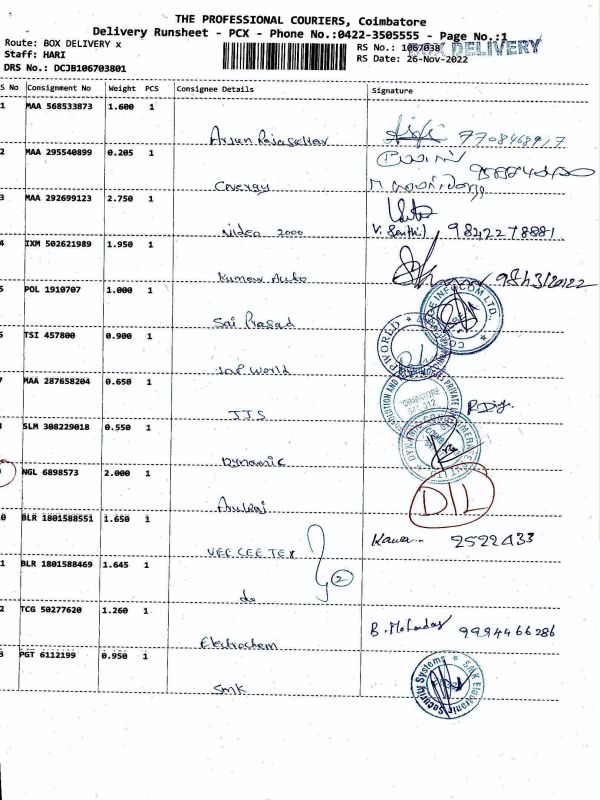 THE PROFESSIONAL COURIERS, Coimbatore
Delivery Runsheet - PCX - Phone No.:0422-3505555 - Page No.:1
Route: BOX DELIVERY x
RS No.: 1067038
BOX DELIVERY
Staff: HARI
RS Date: 26-Nov-2022
DRS No.: DCJB106703801
S No Consignment No Weight PCS Consignee Details Signature
1 MAA 568533873 1.600 1
Arjun Rajasekar 7708468917
2 MAA 295540899 0.205 1
3 MAA 292699123 2.750 1
Nidea 2000 V. Senthil 9842278881
4 IXM 502621989 1.950 1
Kumar Auto
5 POL 1910707 1.000 1
Sai Prasad
INFOCOM LTD.
TSI 457800 0.900 1
WORLD
MAA 287658204 0.650 1
JJS
SLM 308229018 0.550 1
Dynamic
NGL 6898573 2.000 1
DIL
0 BLR 1801588551 1.650 1
VEE CEE TEX 2522433
1 BLR 1801588469 1.645 1
do 2
2 TCG 50277620 1.260 1
Electrochem 9994466286
3 PGT 6112199 0.950 1
SMK
SMK Electronic Security Systems